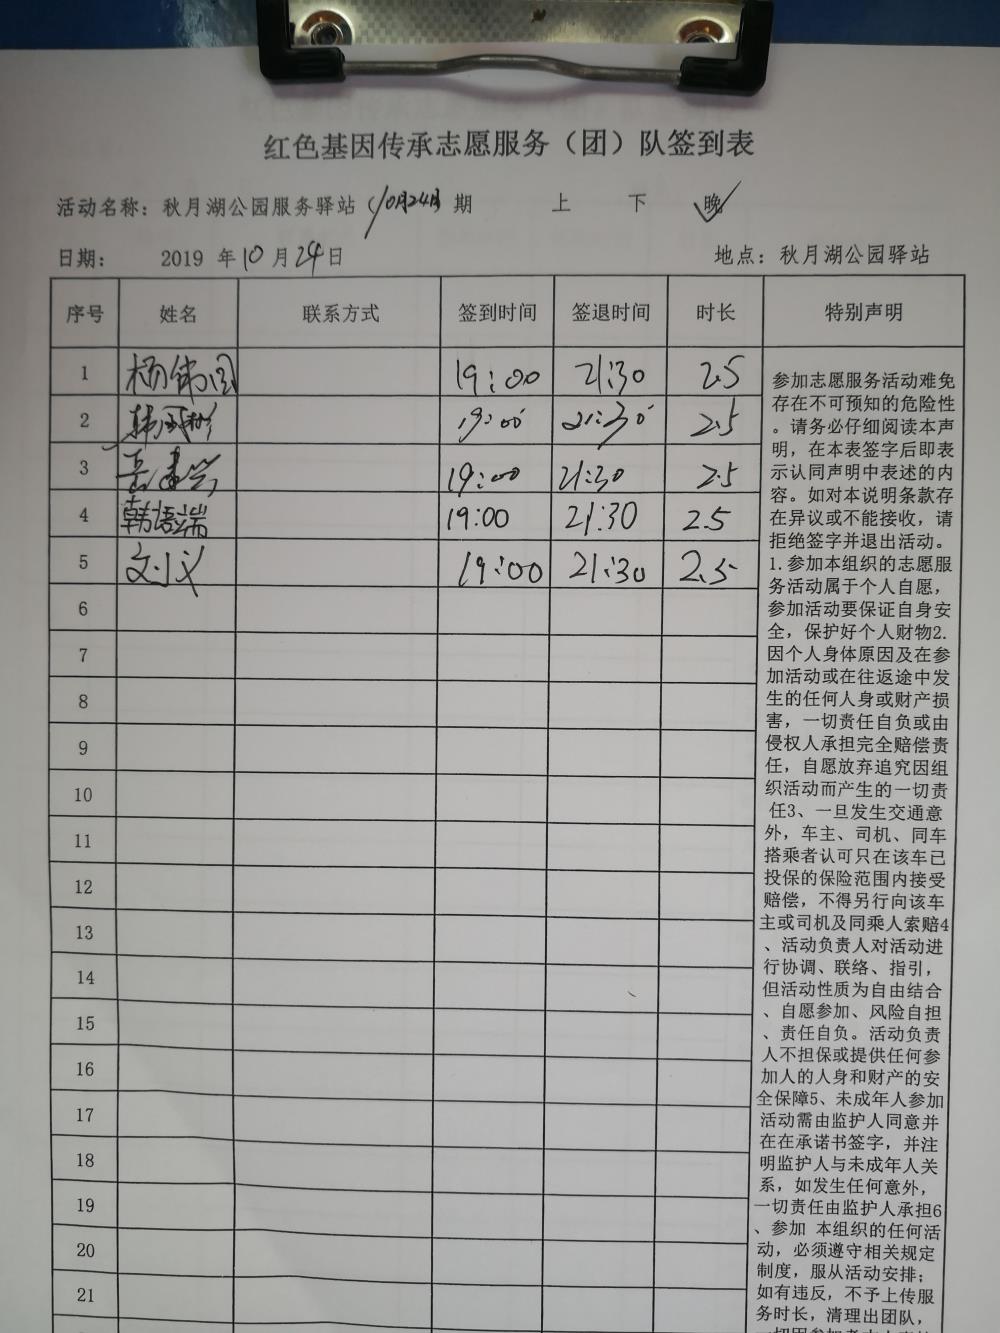 红色基因传承志愿服务（团）队签到表
活动名称：秋月湖公园服务驿站（10月24日 期 上 下 晚
日期： 2019 年10月24日 地点：秋月湖公园驿站
序号 姓名 联系方式 签到时间 签退时间 时长 特别声明
1 杨伟国 19:00 21:30 2.5
2 19:00 21:30 2.5
3 19:00 21:30 2.5
4 韩语端 19:00 21:30 2.5
5 19:00 21:30 2.5
6
7
8
9
10
11
12
13
14
15
16
17
18
19
20
21
参加志愿服务活动难免
存在不可预知的危险性
。请务必仔细阅读本声
明，在本表签字后即表
示认同声明中表述的内
容。如对本说明条款存
在异议或不能接收，请
拒绝签字并退出活动。
1.参加本组织的志愿服
务活动属于个人自愿，
参加活动要保证自身安
全，保护好个人财物2.
因个人身体原因及在参
加活动或在往返途中发
生的任何人身或财产损
害，一切责任自负或由
侵权人承担完全赔偿责
任，自愿放弃追究因组
织活动而产生的一切责
任3、一旦发生交通意
外，车主、司机、同车
搭乘者认可只在该车已
投保的保险范围内接受
赔偿，不得另行向该车
主或司机及同乘人索赔4
、活动负责人对活动进
行协调、联络、指引，
但活动性质为自由结合
、自愿参加、风险自担
、责任自负。活动负责
人不担保或提供任何参
加人的人身和财产的安
全保障5、未成年人参加
活动需由监护人同意并
在在承诺书签字，并注
明监护人与未成年人关
系，如发生任何意外，
一切责任由监护人承担6
、参加 本组织的任何活
动，必须遵守相关规定
制度，服从活动安排；
如有违反，不予上传服
务时长，清理出团队，